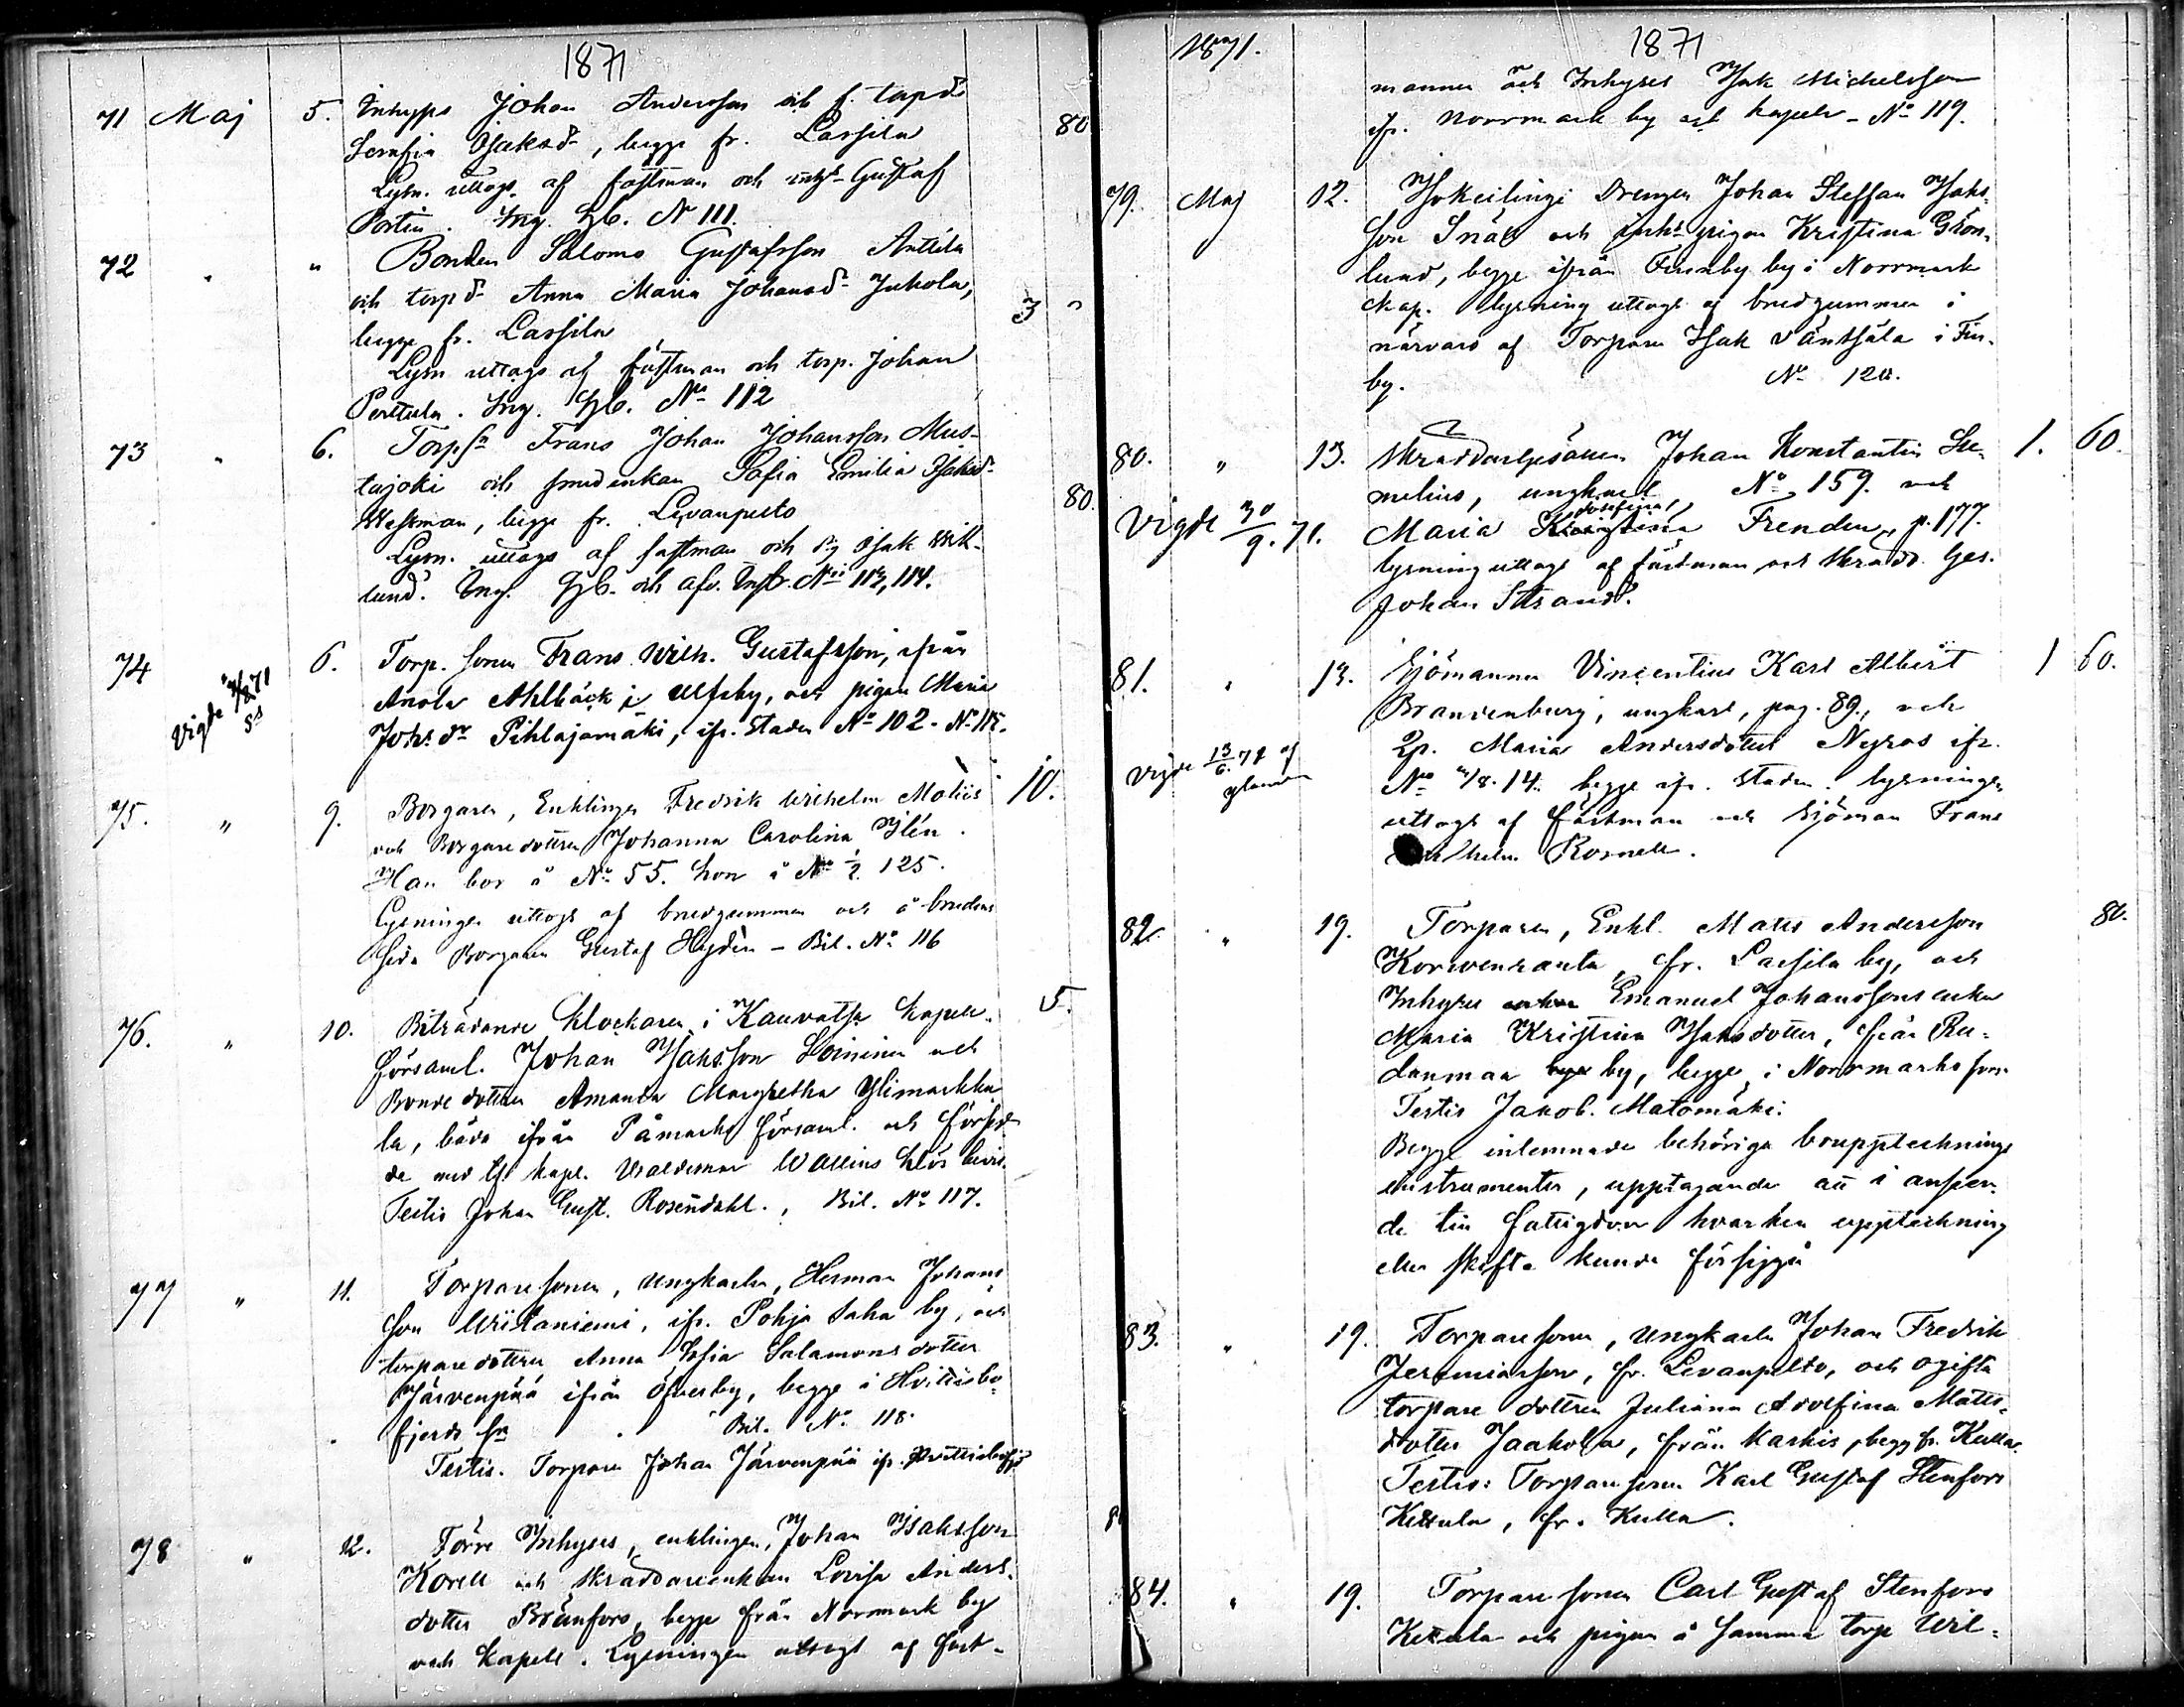 1871
71 Maj 5. Inhyses Johan Andersson och f. torpd
Serafia Isaksd-, begge fr. Lassila 80
Lysn. uttogs af fästman och Gustaf
Portin. Ing. Hb. N 111.
72 " " Bonden Salomo Gustafsson Anttila
och torpd- Anna Maria Johansd- Jukola, 3 "
begge fr. Lassila
Lysn uttogs af fästman och torp. Johan
Perttula. Ing. Hb. No 112
73 " 6. Torpsn Frans Johan Johansson Mus-
tajoki och smedenkan Sofia Emilia Isaksd-
Westman, begge fr. Levanpelto 80.
Lysn. uttogs af fästman och Isak Wik-
lund. Ing. Hb. och afv. Instr. No 113, 114.
74 6. Torp. sonen Frans Wilh. Gustafsson, ifrån
Anola Ahlbäck i Ulfsby, och pigan Maria
Vigde 1871
Johs dr Pihlajamäki, ifr. Staden No 102. No 115.
75. " 9. Borgaren, Enklingen Fredrik Wilhelm Matiis 10.
och Borgaredottren Johanna Carolina Ylén.
Han bor å No 55. hon å No ½ 125.
Lysningen uttogs af brudgummen och å brudens
sida Borgaren Gustaf Hydén - Bil. No 116
76. " 10. Biträdande klockaren i Kauvatsa kapell- 5.
församl. Johan Isaksson Loininen och
Bondedottren Amanda Margretha Ylimarkku-
la, båda ifrån Påmarks församl. och försed-
da med kapl. Waldemar Wallins bevis.
Testis Johan Gust. Rosendahl., Bil. No 117.
77 " 11. Torparesonen, ungkarlen, Herman Johans-
son Wiitaniemi, ifr. Pohjasaha by, och
torparedottren Anna Sofia Salamonsdotter
Järvenpää ifrån Öfverby, begge i Hvittisbo-
fjerds fn Bil. No 118.
Testis. Torparen Johan Järvenpää ifr. Hvittisbofjd
78 " 12. Förre Inhyses, enklingen, Johan Isaksson 8
Korell och Skräddareenkan Lovisa Anders-
dotter Brännfors, begge från Norrmark by
och kapell. Lysningen uttogs af fäst-
1871. 1871
mannen och Inhyses Isak Michelsson
ifr. Norrmark by och kapell - No 119.
79. Maj 12. Drengen Johan Steffan Isaks-
son Snäll och pigan Kristina Grön-
lund, begge ifrån Finnby by i Norrmark
kap. lysning uttogs af brudgummen i
närvaro af Torparen Isak Väntsälä i Fin-
by. No 120.
80. " 13. Skräddaregesällen Johan Konstantin Se- 1. 60.
melius, ungkarl, No 159. och
Vigde 30/9. 71. Maria Kristina Josefina Frenden, p. 177.
lysning uttogs af fästman och Skrädd. Ges.
Johan Strand.
81. " 13. Sjömannen Vincentius Karl Albert 1 60.
Brandenburg, ungkarl, pag. 89., och
Qp. Maria Andersdotter Nygros ifr.
Vigde 13/6. 71 af
No 4/8. 14. begge ifr. staden. lysningen
uttogs af fästman och Sjöman Frans
Wilhelm Rosnell.
82. " 19. Torparen, Enkl. Matts Andersson 80.
Korvenranta, fr. Lassila by, och
Inhyses enkan Emanuel Johanssons enka
Maria Kristina Isaksdotter, från Ru-
danmaa by, begge i Norrmarks förs.
Testis Jakob Matomäki.
Begge inlemnade behöriga bouppteckning-
instrumenter, upptagande att i anseen-
de till fattigdom hvarken uppteckning
eller skifte kunde försiggå
83. " 19. Torparesonen, ungkarlen Johan Fredrik
Jeremiasson, fr. Levanpelto, och ogifta
torpare dottren Juliana Adolfina Matts-
dotter Jaakola, från Harkis, begge fr. Kulla.
Testis: Torparesonen Karl Gustaf Stenfors
Kettula, fr. Kulla.
84. " 19. Torparesonen Carl Gustaf Stenfors
Kettula och pigan å samma torp Wil-